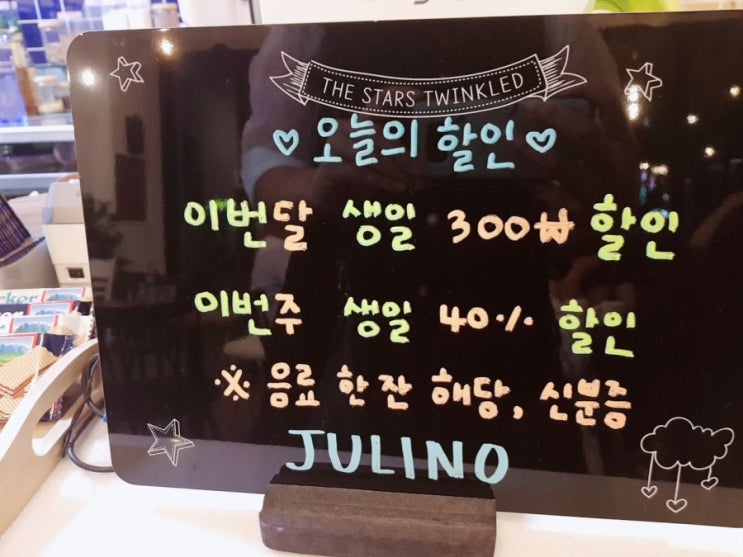 THE STARS TWINKLED
♡ 오늘의 할인 ♡
이번달 생일 300₩ 할인
이번주 생일 40% 할인
※ 음료 한잔 해당, 신분증
JULINO